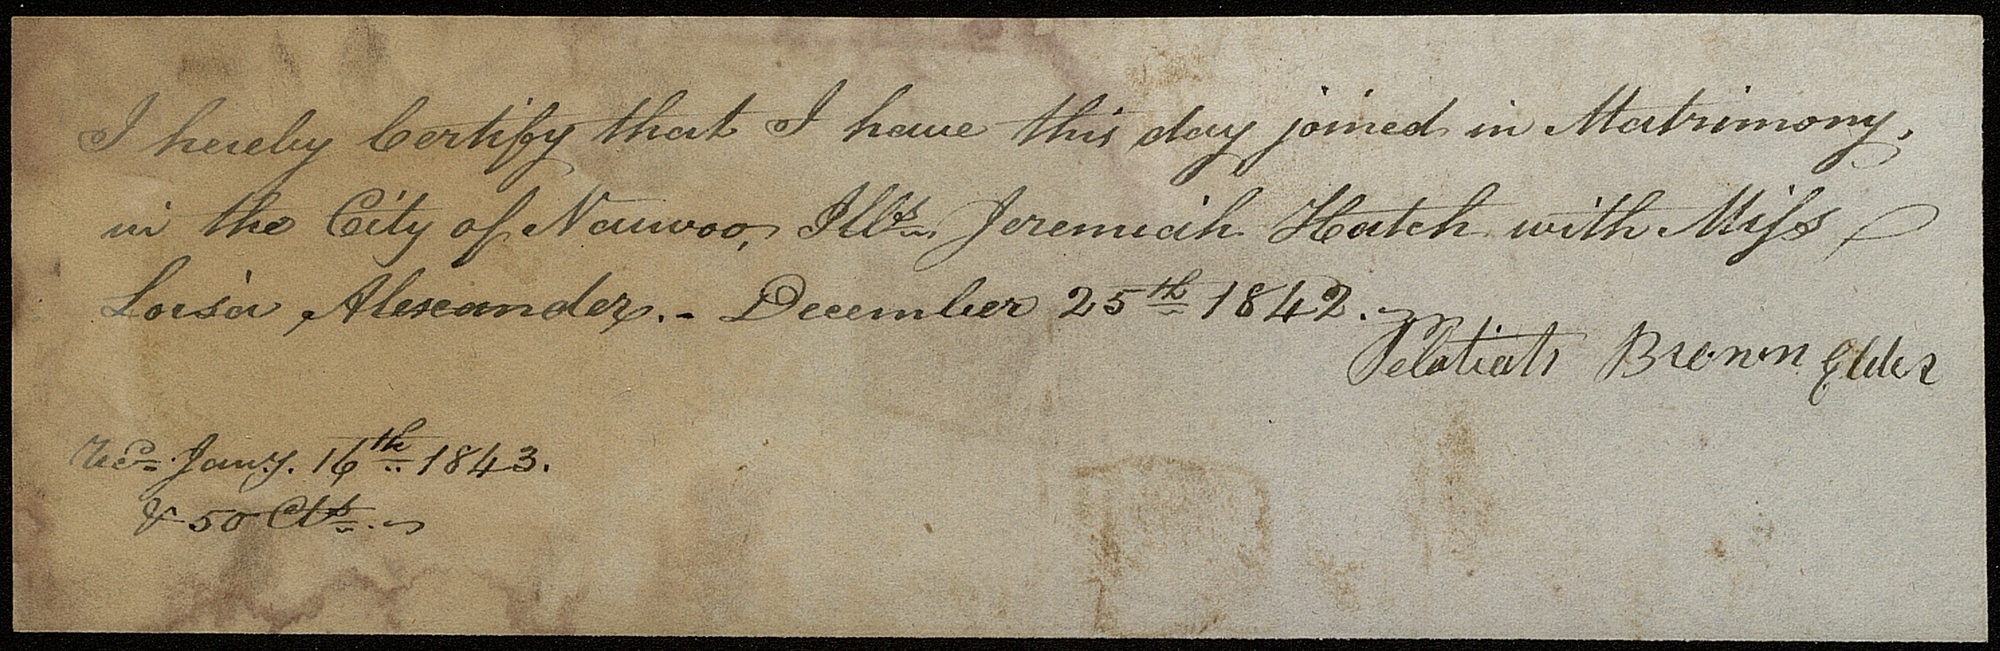 I hereby Certify that I have this day joined in Matrimony,
in the City of Nauvoo, Ills. Jeremiah Hatch with Miss
Loisa Alexander. - December 25th 1842.
Pelatiah Brown Elder
Recd. Jany. 16th 1843.
& 50 Cts.